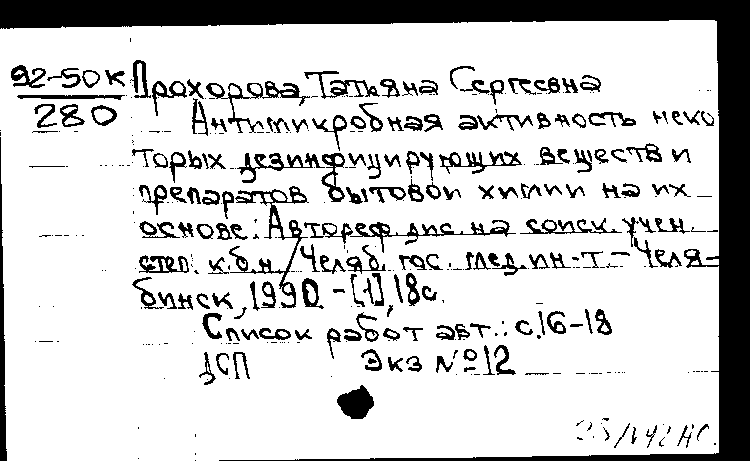 92-50к Прохорова, Татьяна Сергеевна
280 Антимикробная активность неко
торых дезинфицирующих веществ и
препаратов бытовой химии на их
основе: Автореф. дис. на соиск. учен.
степ. к.б.н./Челяб. гос. мед. ин-т. - Челя-
бинск, 1990. - [1], 18с.
Список работ авт.: с. 16-18
ДСП Экз №12